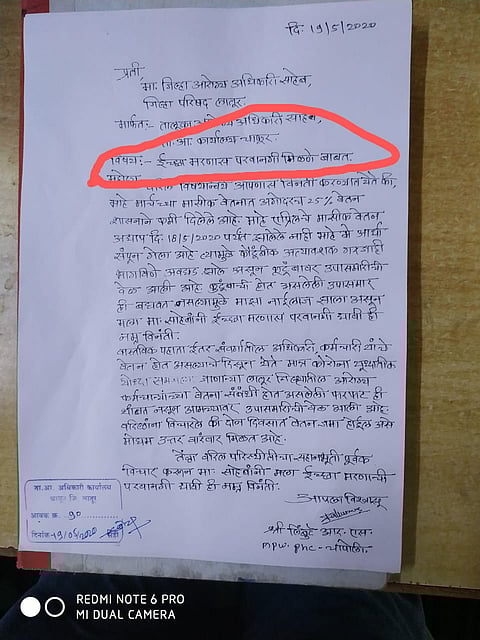 दि: 19/5/2020
प्रती,
मा. जिल्हा आरोग्य अधिकारी साहेब,
जिल्हा परिषद लातूर.
मार्फत:- तालुका आरोग्य अधिकारी साहेब,
ता.आ. कार्यालय चाकूर.
विषय:- ईच्छा मरणास परवानगी मिळणे बाबत.
महोदय
वरील विषयान्वये आपणास विनंती करण्यात येते की,
माहे मार्चच्या मासीक वेतनात अगोदरच 25% वेतन
शासनाने कमी दिलेले आहे. माहे एप्रिलचे मासीक वेतन
अद्याप दि: 18/5/2020 पर्यंत झालेले नाही माहे मे आर्धा
संपून गेला आहे त्यामुळे कौटुंबीक अत्यावशक गरजाही
भागविणे अवघड झाले असून कुटुंबावर उपासमारीची
वेळ आली आहे. कुटुंबाची होत असलेली उपासमार
ही बघवत नसल्यामुळे माझा नाईलाज झाला असून
मला मा. साहेबांनी ईच्छा मरणास परवानगी द्यावी ही
नम्र विनंती.
वास्तविक पहाता ईतर संवर्गातील अधिकारी, कर्मचारी यांचे
वेतन होत असल्याचे दिसून येते मात्र कोरोना युध्दातील
योध्दा समजला जाणाऱ्या लातूर जिल्ह्यातील आरोग्य
कर्मचाऱ्यांच्या वेतना संबंधी होत असलेली परपट ही
थांबत नसून आमच्यावर उपासमारीची वेळ आली आहे.
वरिष्ठांना विचारले की दोन दिवसात वेतन जमा होईल असे
मोघम उत्तर वारंवार मिळत आहे.
तेंव्हा वरिल परिस्थितीचा सहानभूती पूर्वक
विचार करून मा. साहेबांनी मला ईच्छा मरणाची
परवानगी द्यावी ही नम्र विनंती.
आपला विश्वासू
श्री लिंगुटे आर. एस.
mpw. phc -
ता.आ. अधिकारी कार्यालय
चाकूर जि. लातूर
आवक क्र. 90
दिनांक 19/05/2020
REDMI NOTE 6 PRO
MI DUAL CAMERA